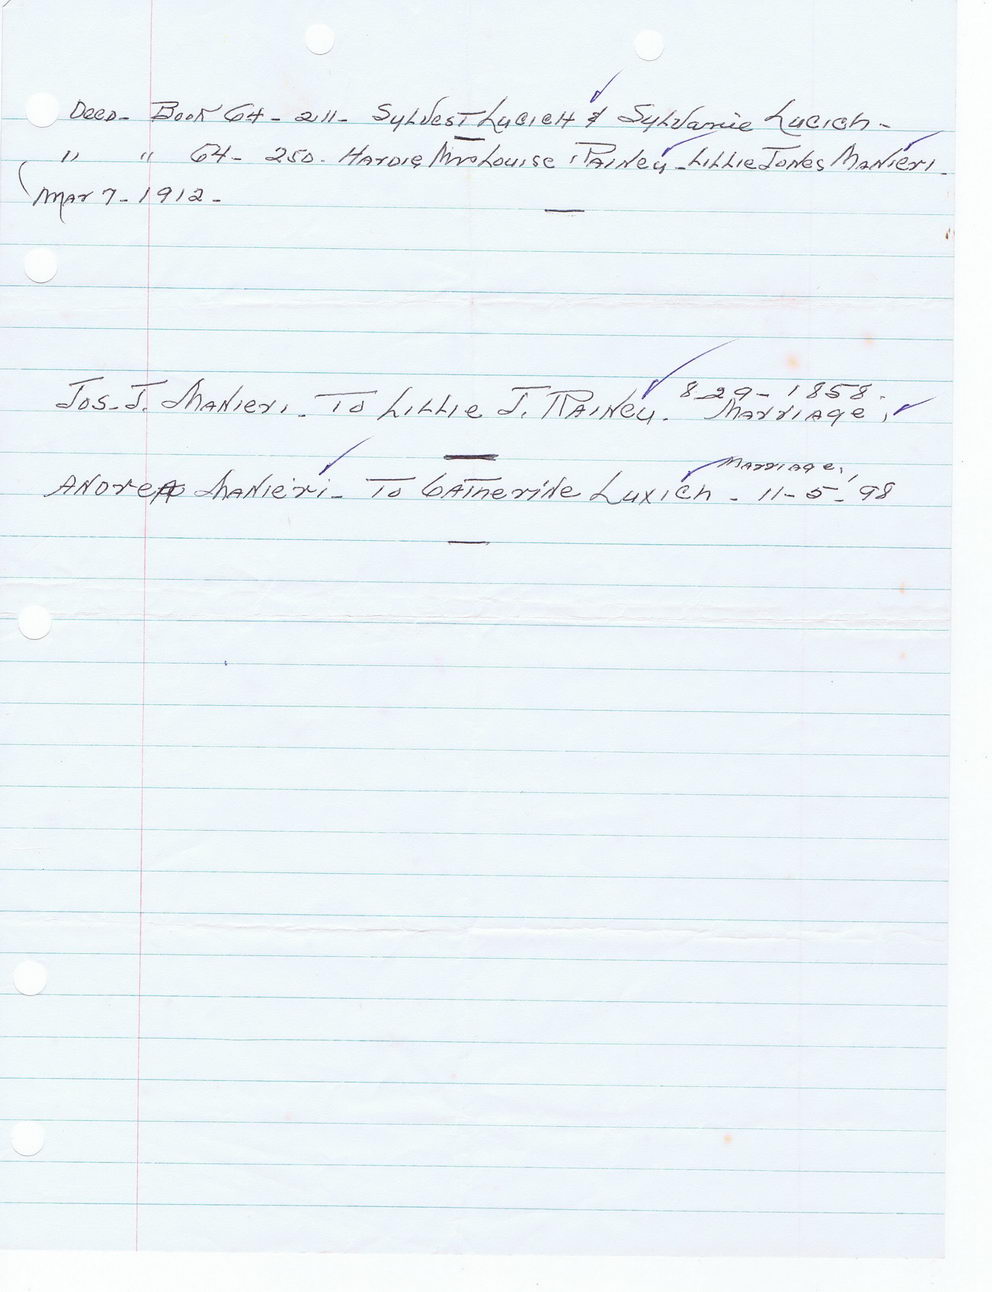 Deed- Book 64- 211- Sylvest Lucich & Sylvanie Lucich-
" " 64- 250. Hardie Mrs Louise Rainey- Lillie Jones Manieri.
(Mar 7-1912-
8-29-1858.
Jos. J. Manieri. To Lillie J. Rainey. Marriage,
Marriage,
Andrea Manieri- To Catherine Luxich - 11-5-'98